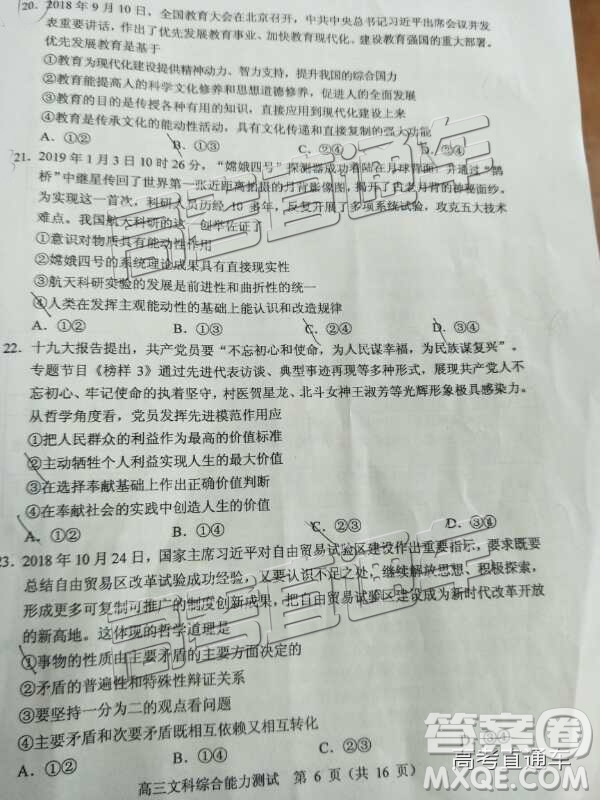 20. 2018 年 9 月 10 日，全国教育大会在北京召开，中共中央总书记习近平出席会议并发
表重要讲话，作出了优先发展教育事业、加快教育现代化、建设教育强国的重大部署。
优先发展教育是基于
①教育为现代化建设提供精神动力、智力支持，提升我国的综合国力
②教育能提高人的科学文化修养和思想道德修养，促进人的全面发展
③教育的目的是传授各种有用的知识，直接应用到现代化建设上来
④教育是传承文化的能动性活动，具有文化传递和直接复制的强大功能
A. ①② B. ①③ C. ②④ D. ③④
21. 2019 年 1 月 3 日 10 时 26 分，“嫦娥四号”探测器成功着陆在月球背面，并通过“鹊
桥”中继星传回了世界第一张近距离拍摄的月背影像图，揭开了古老月背的神秘面纱。
为实现这一首次，科研人员历经 10 多年，反复开展了多项系统试验，攻克五大技术
难点。我国航天科研的这一创举佐证了
①意识对物质具有能动性作用
②嫦娥四号的系统理论成果具有直接现实性
③航天科研实验的发展是前进性和曲折性的统一
④人类在发挥主观能动性的基础上能认识和改造规律
A. ①② B. ①③ C. ②④ D. ③④
22. 十九大报告提出，共产党员要“不忘初心和使命，为人民谋幸福，为民族谋复兴”。
专题节目《榜样 3》通过先进代表访谈、典型事迹再现等多种形式，展现共产党人不
忘初心、牢记使命的执着坚守，村医贺星龙、北斗女神王淑芳等光辉形象极具感染力。
从哲学角度看，党员发挥先进模范作用应
①把人民群众的利益作为最高的价值标准
②主动牺牲个人利益实现人生的最大价值
③在选择奉献基础上作出正确价值判断
④在奉献社会的实践中创造人生的价值
A. ①② B. ①④ C. ②③ D. ③④
23. 2018 年 10 月 24 日，国家主席习近平对自由贸易试验区建设作出重要指示，要求既要
总结自由贸易区改革试验成功经验，又要认识不足之处，继续解放思想、积极探索，
形成更多可复制可推广的制度创新成果，把自由贸易试验区建设成为新时代改革开放
的新高地。这体现的哲学道理是
①事物的性质由主要矛盾的主要方面决定的
②矛盾的普遍性和特殊性辩证关系
③要坚持一分为二的观点看问题
④主要矛盾和次要矛盾既相互依赖又相互转化
A. ①② B. ①④ C. ②③ D. ③④
高三文科综合能力测试 第 6 页（共 16 页）
高考直通车
高考直通车
答案圈
高考直通车